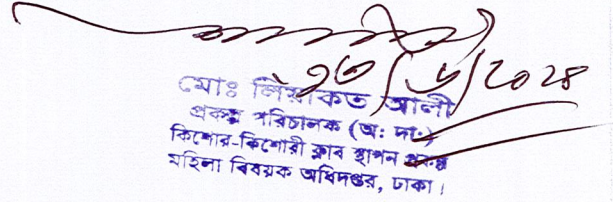 ১৩/৬/২০২৪
মোঃ লিয়াকত আলী
প্রকল্প পরিচালক (অ: দা:)
কিশোর-কিশোরী ক্লাব স্থাপন প্রকল্প
মহিলা বিষয়ক অধিদপ্তর, ঢাকা।